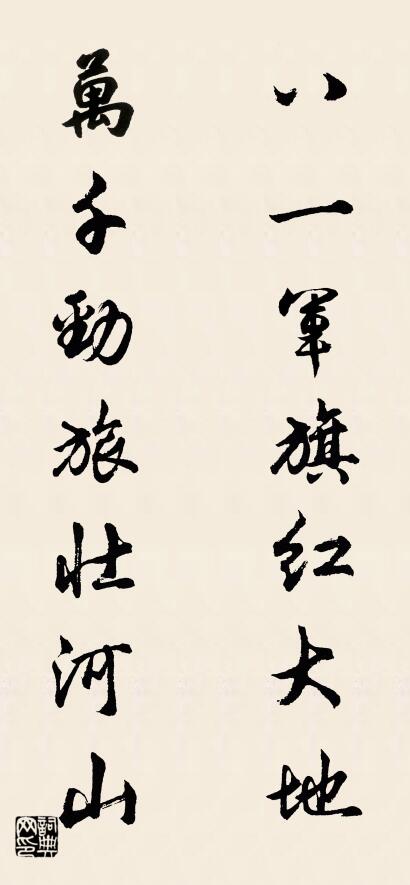 八一軍旗红大地
萬千勁旅壮河山
詞典網印